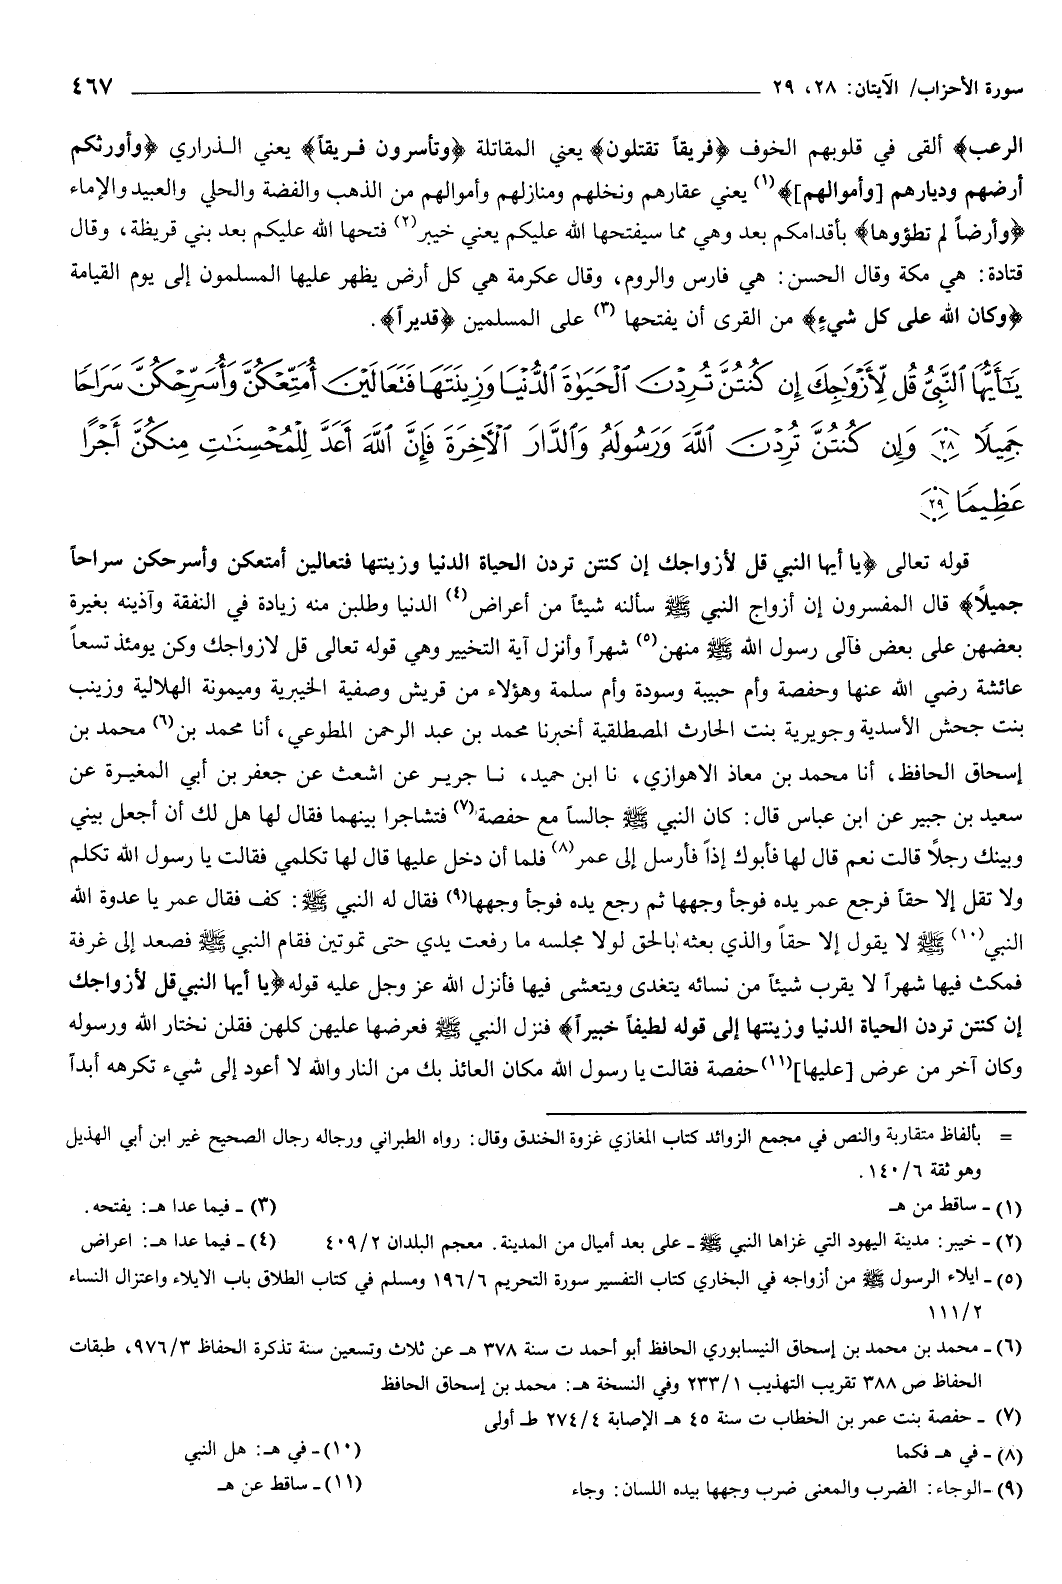 سورة الأحزاب/ الآيتان: ٢٨، ٢٩ ٤٦٧
الرعب﴾ ألقى في قلوبهم الخوف ﴿فريقاً تقتلون﴾ يعني المقاتلة ﴿وتأسرون فريقاً﴾ يعني الذراري ﴿وأورثكم
أرضهم وديارهم [وأموالهم]﴾(١) يعني عقارهم ونخلهم ومنازلهم وأموالهم من الذهب والفضة والحلي والعبيد والإماء
﴿وأرضاً لم تطؤوها﴾ بأقدامكم بعد وهي مما سيفتحها الله عليكم يعني خيبر(٢) فتحها الله عليكم بعد بني قريظة، وقال
قتادة: هي مكة وقال الحسن: هي فارس والروم، وقال عكرمة هي كل أرض يظهر عليها المسلمون إلى يوم القيامة
﴿وكان الله على كل شيءٍ﴾ من القرى أن يفتحها (٣) على المسلمين ﴿قديراً﴾.
يَٰٓأَيُّهَا ٱلنَّبِيُّ قُل لِّأَزْوَٰجِكَ إِن كُنتُنَّ تُرِدْنَ ٱلْحَيَوٰةَ ٱلدُّنْيَا وَزِينَتَهَا فَتَعَالَيْنَ أُمَتِّعْكُنَّ وَأُسَرِّحْكُنَّ سَرَاحًا
جَمِيلًا ٢٨ وَإِن كُنتُنَّ تُرِدْنَ ٱللَّهَ وَرَسُولَهُۥ وَٱلدَّارَ ٱلْآخِرَةَ فَإِنَّ ٱللَّهَ أَعَدَّ لِلْمُحْسِنَٰتِ مِنكُنَّ أَجْرًا
عَظِيمًا ٢٩
قوله تعالى ﴿يا أيها النبي قل لأزواجك إن كنتن تردن الحياة الدنيا وزينتها فتعالين أمتعكن وأسرحكن سراحاً
جميلاً﴾ قال المفسرون إن أزواج النبي ﷺ سألنه شيئاً من أعراض(٤) الدنيا وطلبن منه زيادة في النفقة وآذينه بغيرة
بعضهن على بعض فآلى رسول الله ﷺ منهن(٥) شهراً وأنزل آية التخيير وهي قوله تعالى قل لازواجك وكن يومئذ تسعاً
عائشة رضي الله عنها وحفصة وأم حبيبة وسودة وأم سلمة وهؤلاء من قريش وصفية الخيبرية وميمونة الهلالية وزينب
بنت جحش الأسدية وجويرية بنت الحارث المصطلقية أخبرنا محمد بن عبد الرحمن المطوعي، أنا محمد بن(٦) محمد بن
إسحاق الحافظ، أنا محمد بن معاذ الاهوازي، نا ابن حميد، نا جرير عن اشعث عن جعفر بن أبي المغيرة عن
سعيد بن جبير عن ابن عباس قال: كان النبي ﷺ جالساً مع حفصة(٧) فتشاجرا بينهما فقال لها هل لك أن أجعل بيني
وبينك رجلاً قالت نعم قال لها فأبوك إذاً فأرسل إلى عمر(٨) فلما أن دخل عليها قال لها تكلمي فقالت يا رسول الله تكلم
ولا تقل إلا حقاً فرجع عمر يده فوجأ وجهها ثم رجع يده فوجأ وجهها(٩) فقال له النبي ﷺ: كف فقال عمر يا عدوة الله
النبي(١٠) ﷺ لا يقول إلا حقاً والذي بعثه بالحق لولا مجلسه ما رفعت يدي حتى تموتين فقام النبي ﷺ فصعد إلى غرفة
فمكث فيها شهراً لا يقرب شيئاً من نسائه يتغدى ويتعشى فيها فأنزل الله عز وجل عليه قوله ﴿يا أيها النبي قل لأزواجك
إن كنتن تردن الحياة الدنيا وزينتها إلى قوله لطيفاً خبيراً﴾ فنزل النبي ﷺ فعرضها عليهن كلهن فقلن نختار الله ورسوله
وكان آخر من عرض [عليها](١١) حفصة فقالت يا رسول الله مكان العائذ بك من النار والله لا أعود إلى شيء تكرهه أبداً
= بألفاظ متقاربة والنص في مجمع الزوائد كتاب المغازي غزوة الخندق وقال: رواه الطبراني ورجاله رجال الصحيح غير ابن أبي الهذيل
وهو ثقة ١٤٠/٦.
(١) - ساقط من هـ (٣) - فيما عدا هـ: يفتحه.
(٢) - خيبر: مدينة اليهود التي غزاها النبي ﷺ - على بعد أميال من المدينة. معجم البلدان ٤٠٩/٢ (٤) - فيما عدا هـ: اعراض
(٥) - ايلاء الرسول ﷺ من أزواجه في البخاري كتاب التفسير سورة التحريم ١٩٦/٦ ومسلم في كتاب الطلاق باب الايلاء واعتزال النساء
١١١/٢
(٦) - محمد بن محمد بن إسحاق النيسابوري الحافظ أبو أحمد ت سنة ٣٧٨ هـ عن ثلاث وتسعين سنة تذكرة الحفاظ ٩٧٦/٣، طبقات
الحفاظ ص ٣٨٨ تقريب التهذيب ٢٣٣/١ وفي النسخة هـ: محمد بن إسحاق الحافظ
(٧) - حفصة بنت عمر بن الخطاب ت سنة ٤٥ هـ الإصابة ٢٧٤/٤ طـ أولى
(٨) - في هـ فكما (١٠) - في هـ: هل النبي
(٩) -الوجاء: الضرب والمعنى ضرب وجهها بيده اللسان: وجاء (١١) - ساقط عن هـ